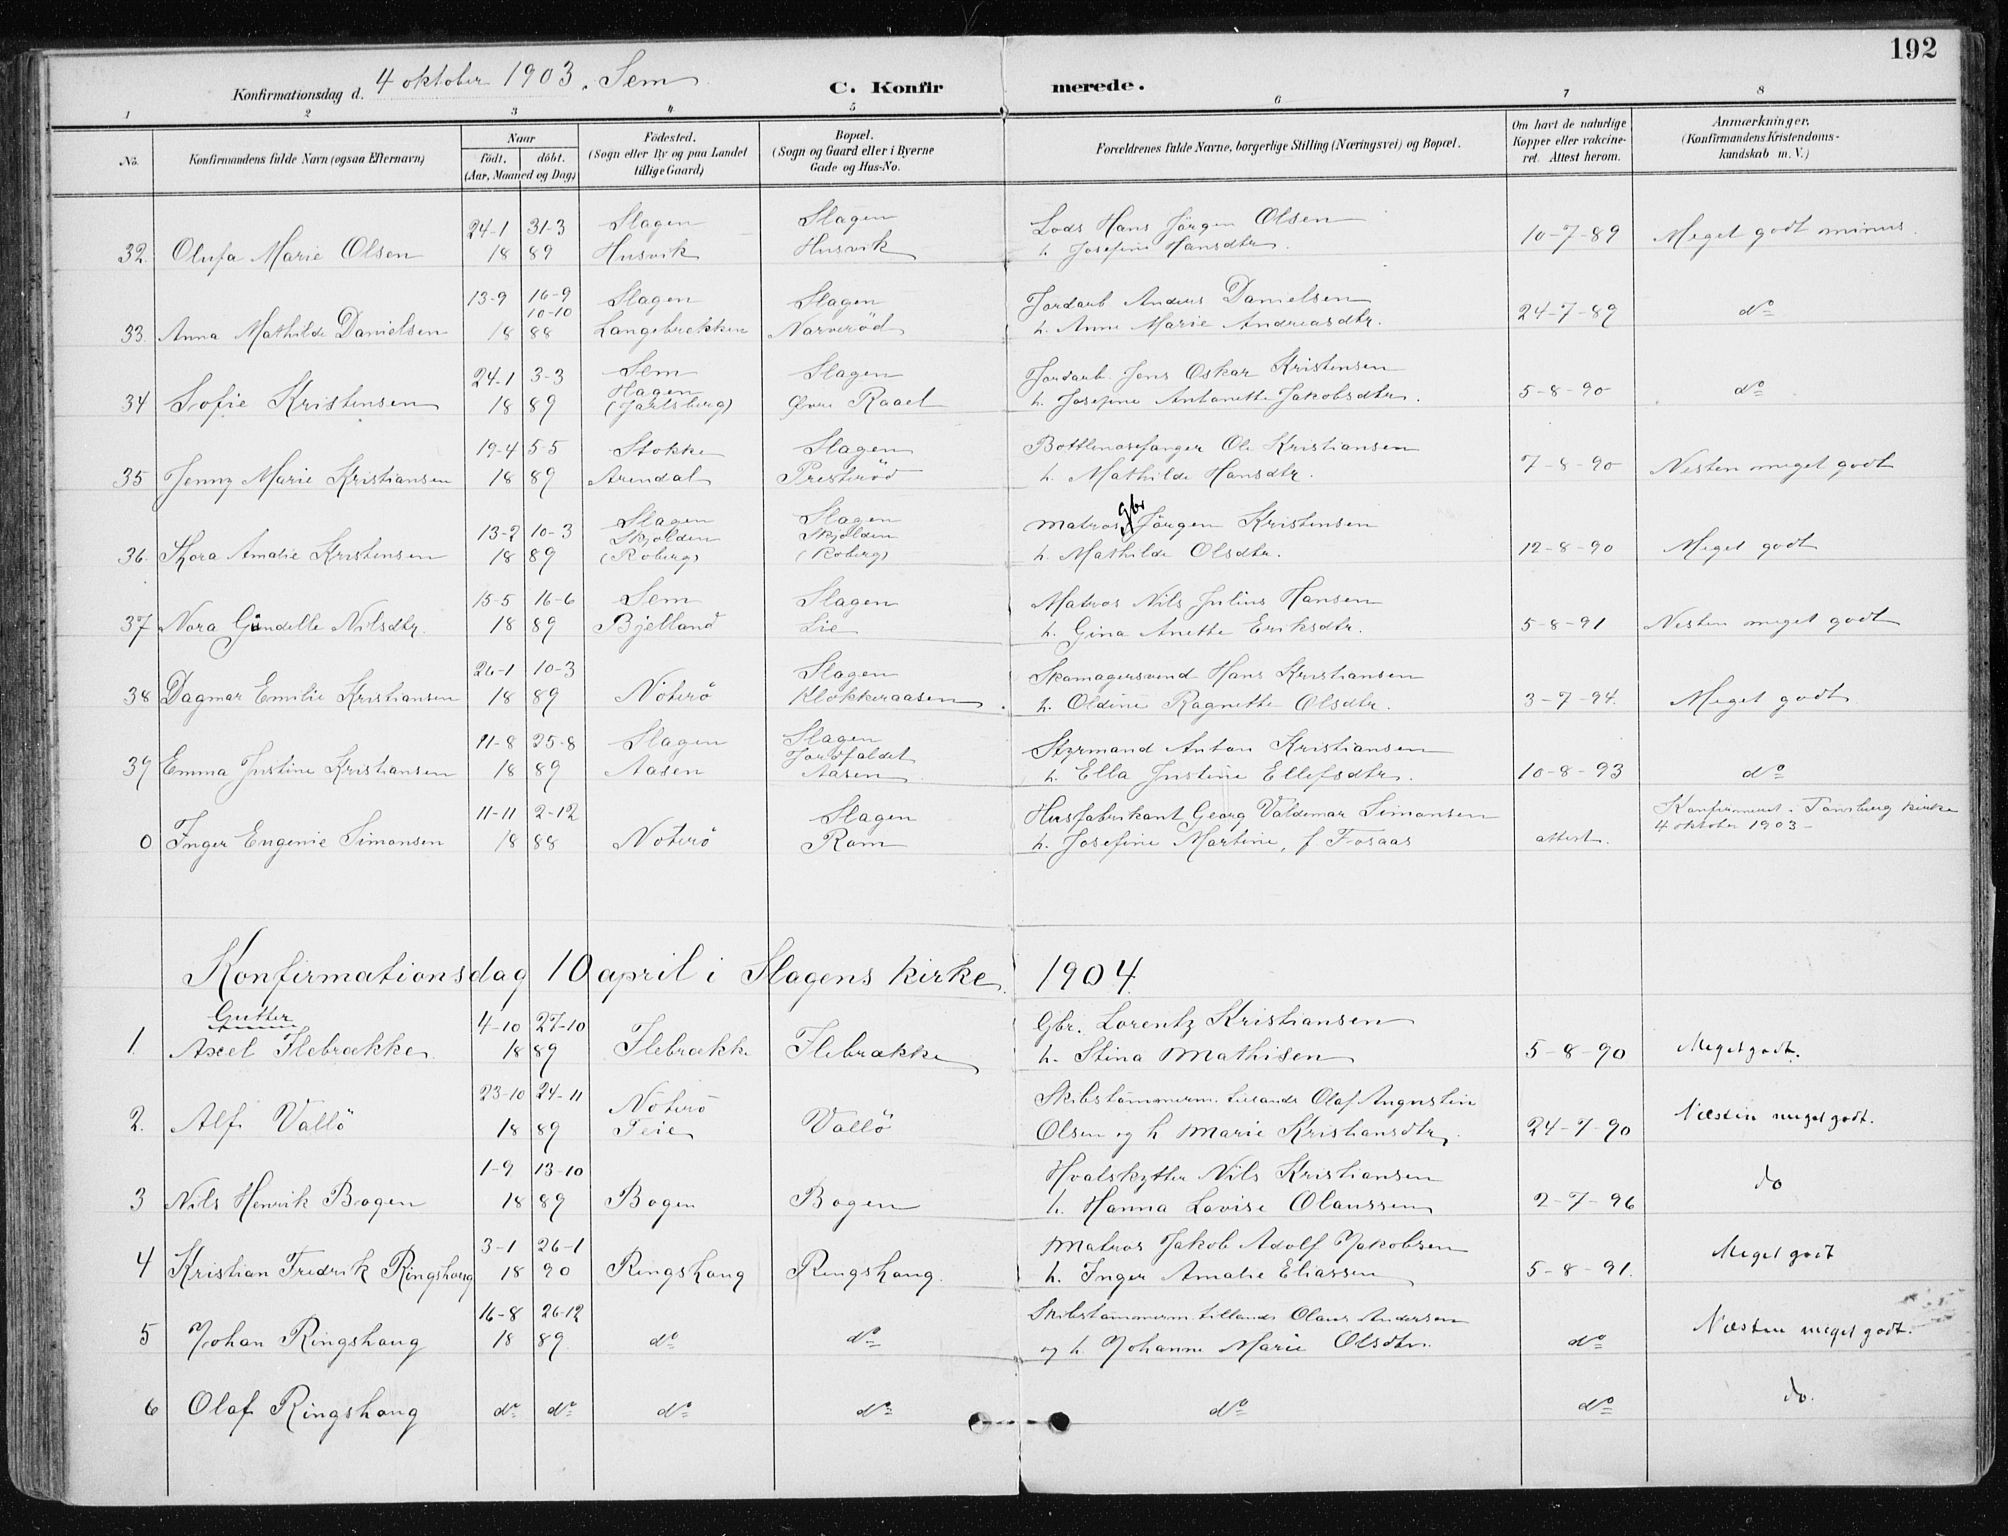 192
Konfirmationsdag d. 4 oktober 1903. Sem
C. Konfirmerede.
1 2 3 4 5 6 7 8
No. Konfirmandens fulde Navn (ogsaa Efternavn) Naar födt. döbt. (Aar, Maaned og Dag) Födested. (Sogn eller By og paa Landet tillige Gaard) Bopæl. (Sogn og Gaard eller i Byerne Gade og Hus-No. Forældrenes fulde Navne, borgerlige Stilling (Næringsvei) og Bopæl. Om havt de naturlige Kopper eller vakcineret. Attest herom. Anmærkninger. (Konfirmandens Kristendomskundskab m. V.)
24-1 31-3 Slagen Slagen Lods Hans Jörgen Olsen
32. Olufa Marie Olsen 18 89 Husvik Husvik h. Josefine Hansdtr. 10-7-89 Meget godt minus.
13-9 16-9 10-10 Slagen Slagen Jordarb Anders Danielsen
33. Anna Mathilde Danielsen 18 88 Langebrekken Narveröd h. Anne Marie Andreasdtr. 24-7-89 do
24-1 3-3 Sem Hagen Slagen Jordarb. Jens Oskar Kristensen
34 Sofie Kristensen 18 89 (Jarlsberg) Øvre Raael h. Josefine Antonette Jakobsdtr. 5-8-90 do
19-4 5-5 Stokke Slagen Bottlenosefanger Ole Kristiansen
35 Jenny Marie Kristiansen 18 89 Arendal Presteröd h. Mathilde Hansdtr. 7-8-90 Nesten meget godt
13-2 10-3 Slagen Skjolden Slagen Skjolden Matros Gbr Jörgen Kristensen
36. Thora Amalie Kristensen 18 89 (Roberg) (Roberg) h. Mathilde Olsdtr. 12-8-90 Meget godt
15-5 16-6 Sem Slagen Matros Nils Julius Hansen
37 Nora Gundelle Nilsdtr. 18 89 Bjelland Lie h. Gina Anette Eriksdtr. 5-8-91 Nesten meget godt
26-1 10-3 Slagen Skomagersvend Hans Kristiansen
38 Dagmar Emilie Kristiansen 18 89 Nöterö Klokkeraasen h. Oldine Ragnette Olsdtr. 3-7-94. Meget godt
11-8 25-8 Slagen Slagen Jordfaldet Styrmand Anton Kristiansen
39 Emma Justine Kristiansen 18 89 Aasen Aasen h. Ella Justine Ellefsdtr. 10-8-93 do
11-11 2-12 Slagen Georg Valdemar Simonsen Konfirmeret i Tønsberg kirke 4 oktober 1903-
0 Inger Eugenie Simonsen 18 88 Nöterö Ram h. Josefine Martine, f Fosaas attest.
Konfirmationsdag 10 april i Slagens kirke. 1904.
Gutter 4-10 27-10 Gbr. Lorentz Kristiansen
1. Axel Ilebrække 18 89 Ilebrække Ilebrække h. Stina Mathisen 5-8-90 Meget godt.
23-10 24-11 Nöterö Skibstömmerm. tillands Olaf Augustin
2. Alf Vallö 18 89 Teie Vallö Olsen og h Marie Kristiansdtr. 24-7-90 Næsten meget godt.
1-9 13-10 Hvalskytter Nils Kristiansen
3 Nils Henrik Bogen 18 89 Bogen Bogen h. Hanna Lovise Olaussen 2-7-96 do
3-1 26-1 Matros Jakob Adolf Jakobsen
4 Kristian Fredrik Ringshaug 18 90 Ringshaug Ringshaug. h. Inger Amalie Eliassen 5-8-91. Meget godt
16-8 26-12 Skibstömmerm. tillands Olaus Andersen
5 Johan Ringshaug 18 89 do do og h. Johanne Marie Olsdtr. do Næsten meget godt.
6 Olaf Ringshaug do do do do do do do.